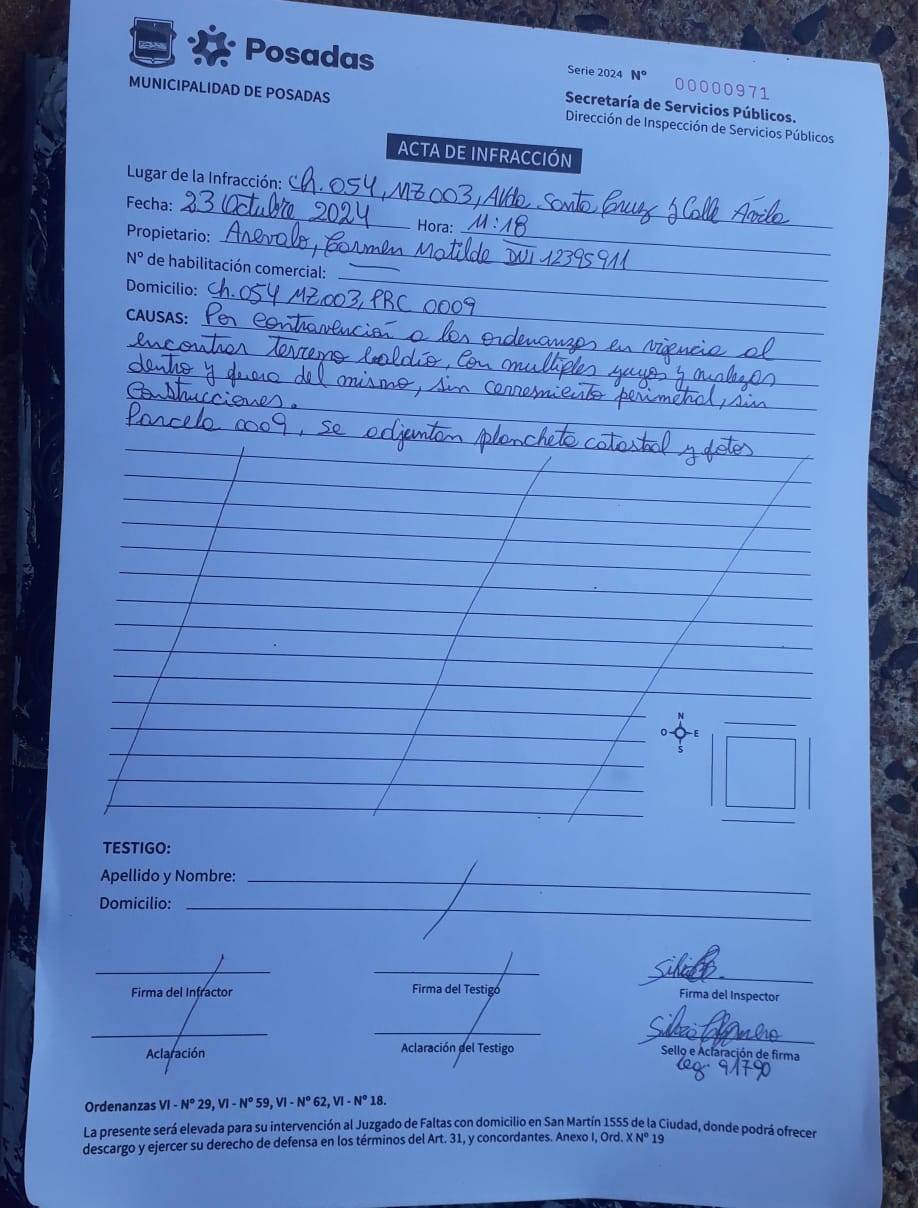 Posadas
MUNICIPALIDAD DE POSADAS
Serie 2024 N° 00000971
Secretaría de Servicios Públicos.
Dirección de Inspección de Servicios Públicos
ACTA DE INFRACCIÓN
Lugar de la Infracción: Ch. 054, MZ 003, AVda Santa Cruz y Calle Avila
Fecha: 23 Octubre 2024 Hora: 11:18
Propietario: Arevalo, Carmen Matilde DNI 12395911
N° de habilitación comercial:
Domicilio: Ch. 054 MZ 003, PRC 0009
CAUSAS: Por contravención a las ordenanzas en vigencia al
encontrar terreno baldío, con multiples yuyos y malezas
dentro y fuera del mismo, sin cerramiento perimetral, sin
Construcciones.
Parcela 0009, se adjuntan plancheta catastral y fotos
N
O E
S
TESTIGO:
Apellido y Nombre:
Domicilio:
Firma del Infractor Firma del Testigo Firma del Inspector
Aclaración Aclaración del Testigo Sello e Aclaración de firma
Leg. 91790
Ordenanzas VI - N° 29, VI - N° 59, VI - N° 62, VI - N° 18.
La presente será elevada para su intervención al Juzgado de Faltas con domicilio en San Martín 1555 de la Ciudad, donde podrá ofrecer
descargo y ejercer su derecho de defensa en los términos del Art. 31, y concordantes. Anexo I, Ord. X N° 19